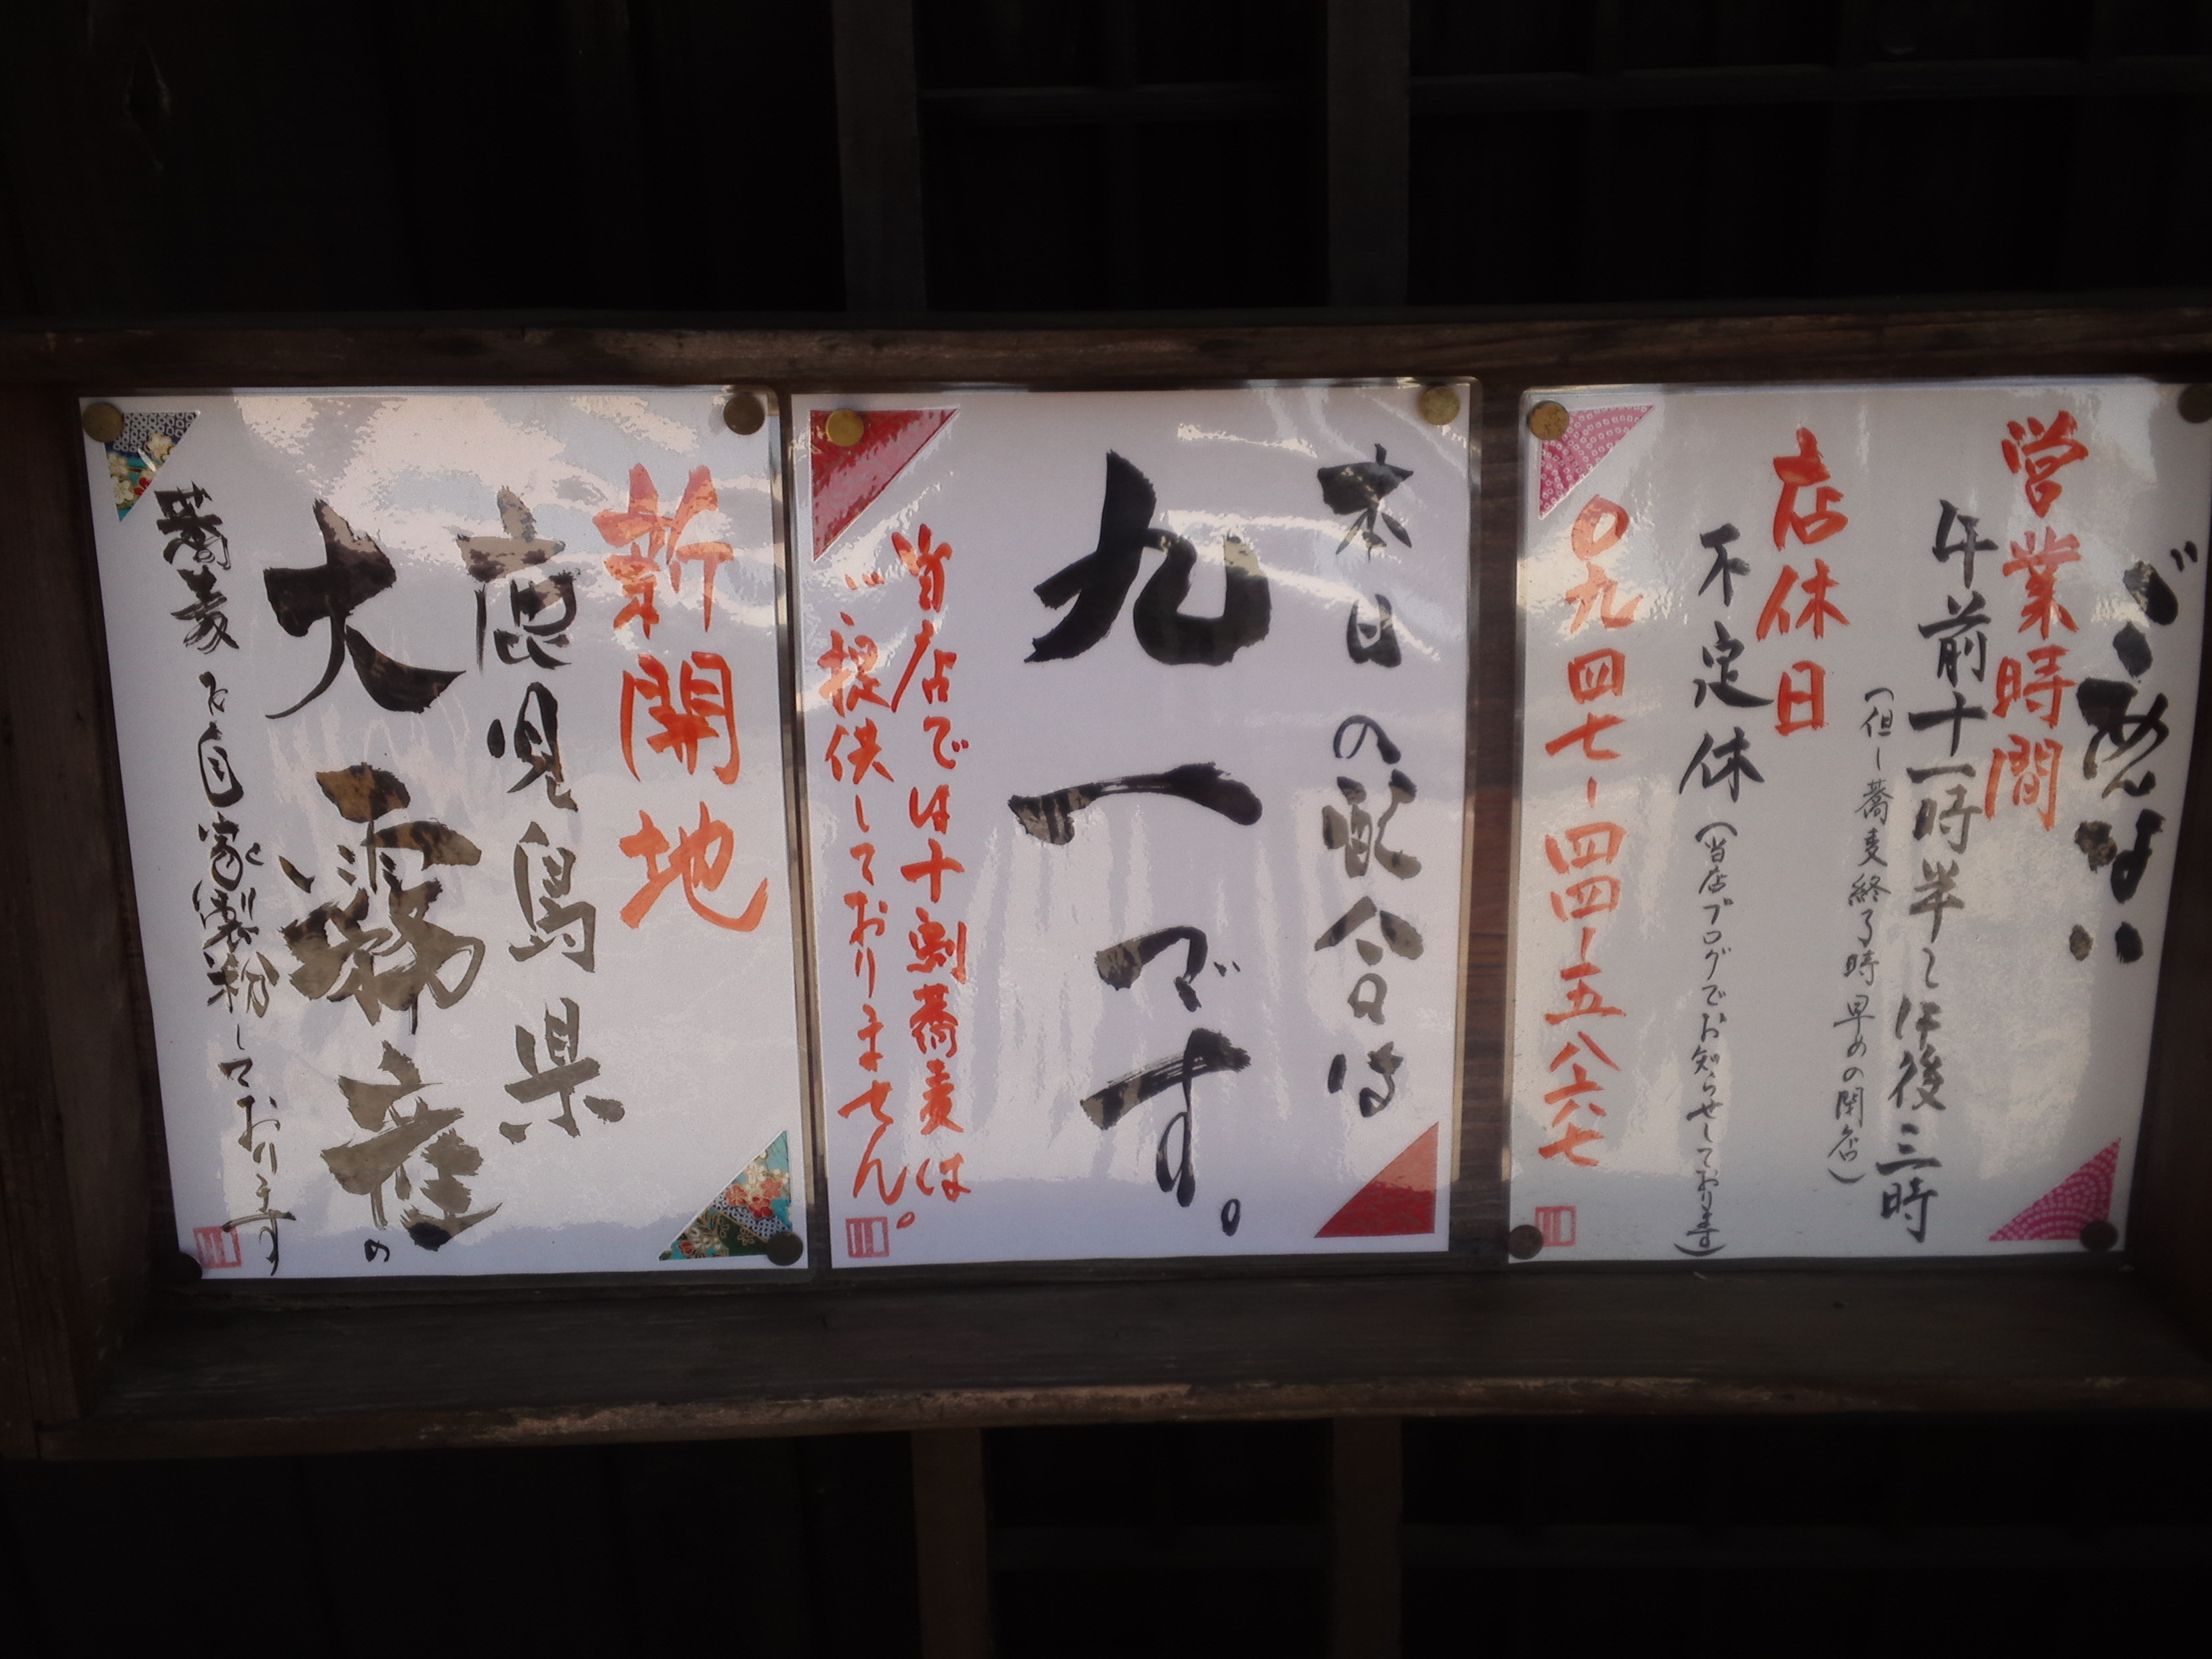 ごあんない
営業時間
午前十一時半〜午後三時
(但し蕎麦終了時早めの閉店)
店休日
不定休(当店ブログでお知らせしております)
〇九四七-四四-五八六七
本日の配合は
九一です。
当店では十割蕎麦は
ご提供しておりません。
新開地
鹿児島県
大霧産の
蕎麦を自家製粉しております